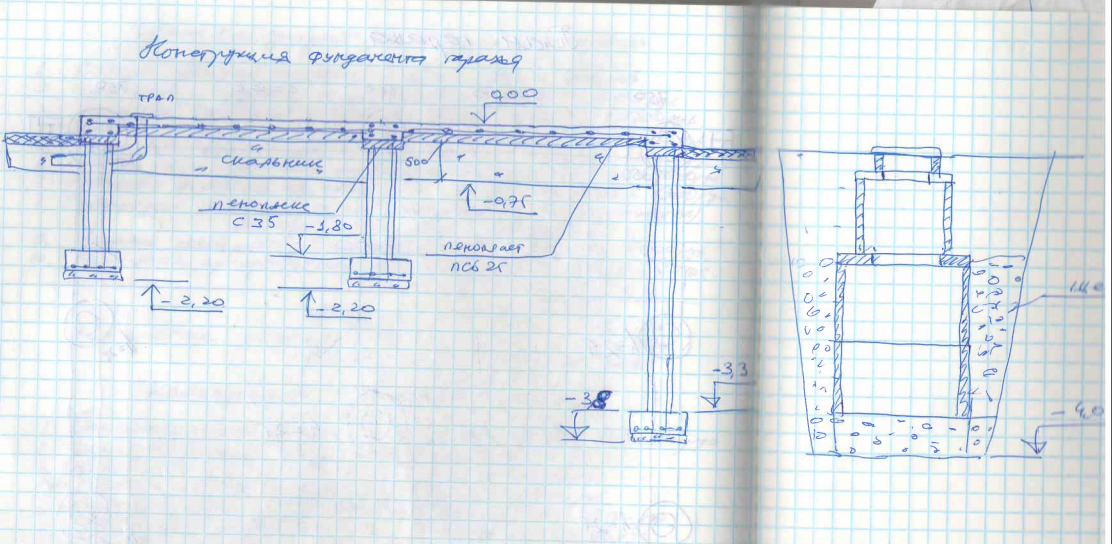 Конструкция фундамента гаража
ТРАП
0,00
скальник
500
-0,75
пеноплекс
С 35
-1,80
пенопласт
ПСБ 25
-2,20
-2,20
-3,3
-3,8
-4,0